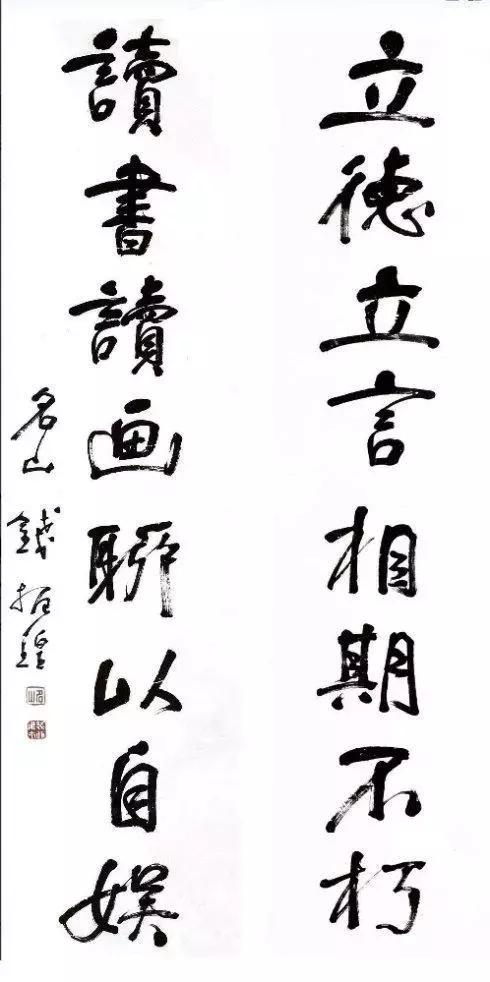 立德立言相期不朽
讀書讀画聊以自娱
名山 錢振鍠